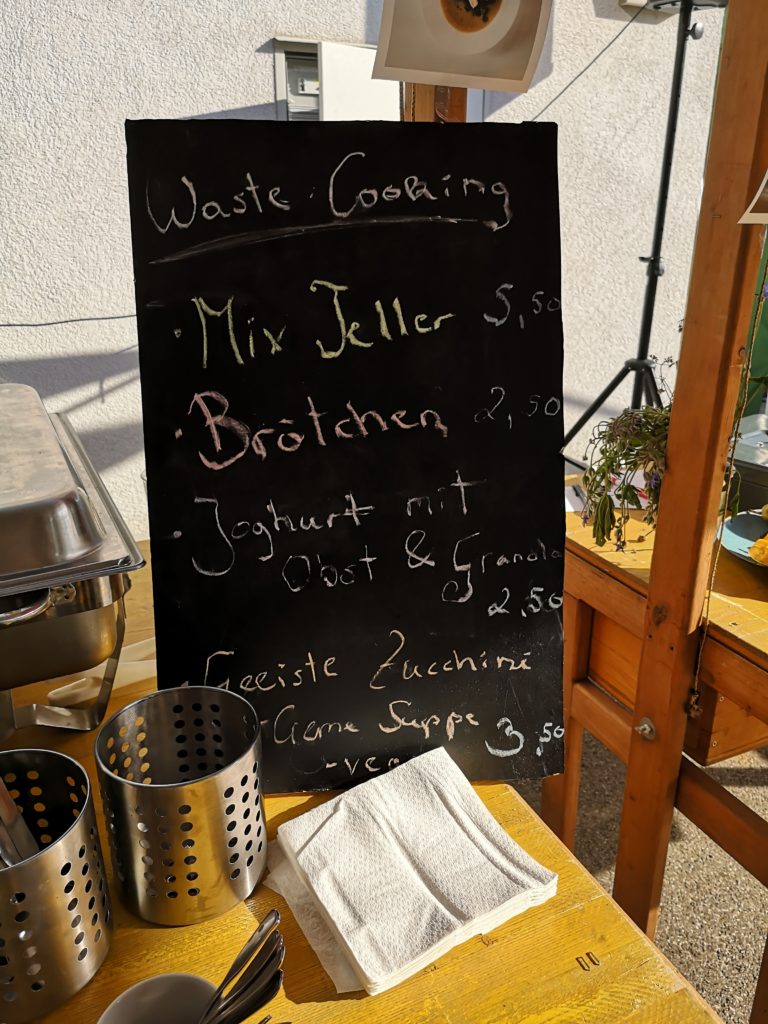 Waste Cooking
· Mix Teller 5,50
· Brötchen 2,50
· Joghurt mit
Obst & Granola
2,50
Geeiste Zucchini
Creme Suppe 3,50